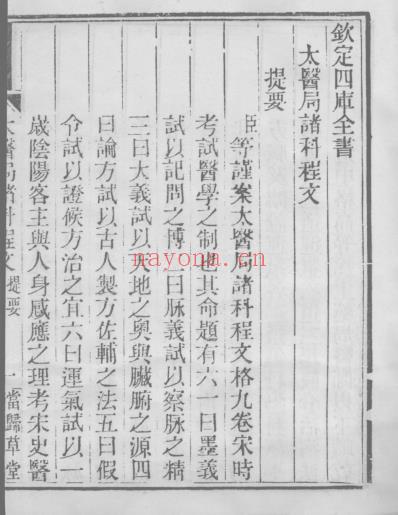 欽定四庫全書
太醫局諸科程文
提要
臣等謹案太醫局諸科程文格九卷宋時
考試醫學之制也其命題有六一曰墨義
試以記問之博二曰脉義試以察脉之精
三曰大義試以天地之奧與臟腑之源四
曰論方試以古人製方佐輔之法五曰假
令試以證候方治之宜六曰運氣試以一
歲陰陽客主與人身感應之理考宋史醫
太醫局諸科程文 提要 一 當歸草堂
nayona.cn